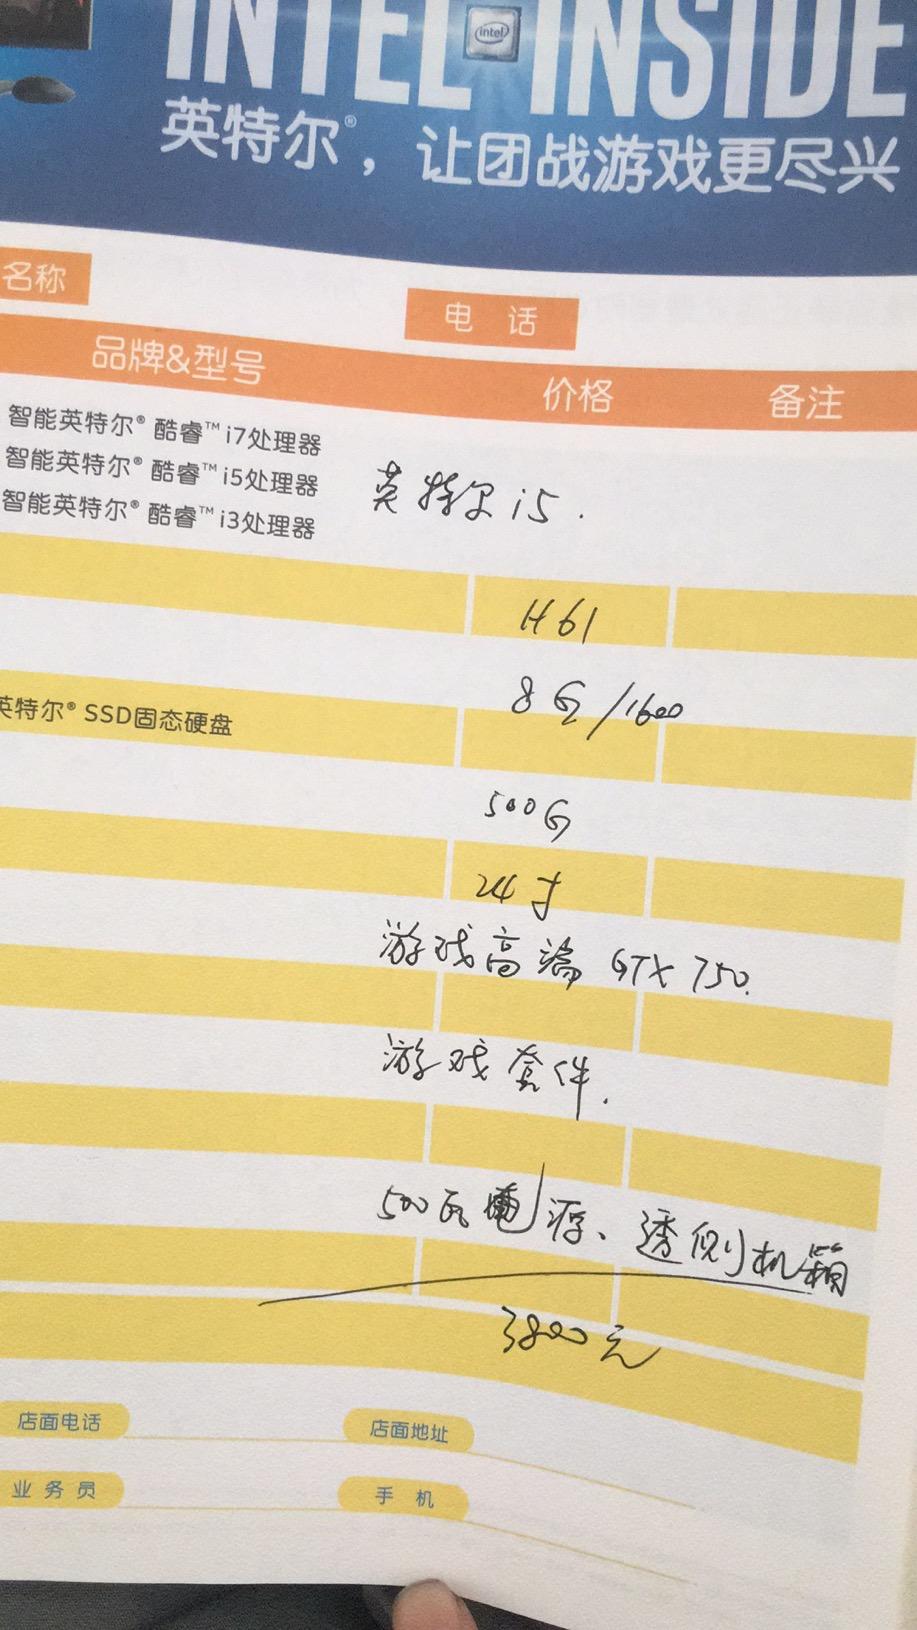 INTEL intel INSIDE
英特尔®，让团战游戏更尽兴
名称
电 话
品牌&型号 价格 备注
智能英特尔® 酷睿™ i7处理器
智能英特尔® 酷睿™ i5处理器
智能英特尔® 酷睿™ i3处理器
英特尔 i5.
H61
8G/1600
英特尔® SSD固态硬盘
500G
24寸
游戏高端 GTX 750.
游戏套件.
500瓦电源、透侧机箱
3800元
店面电话 店面地址
业务员 手 机